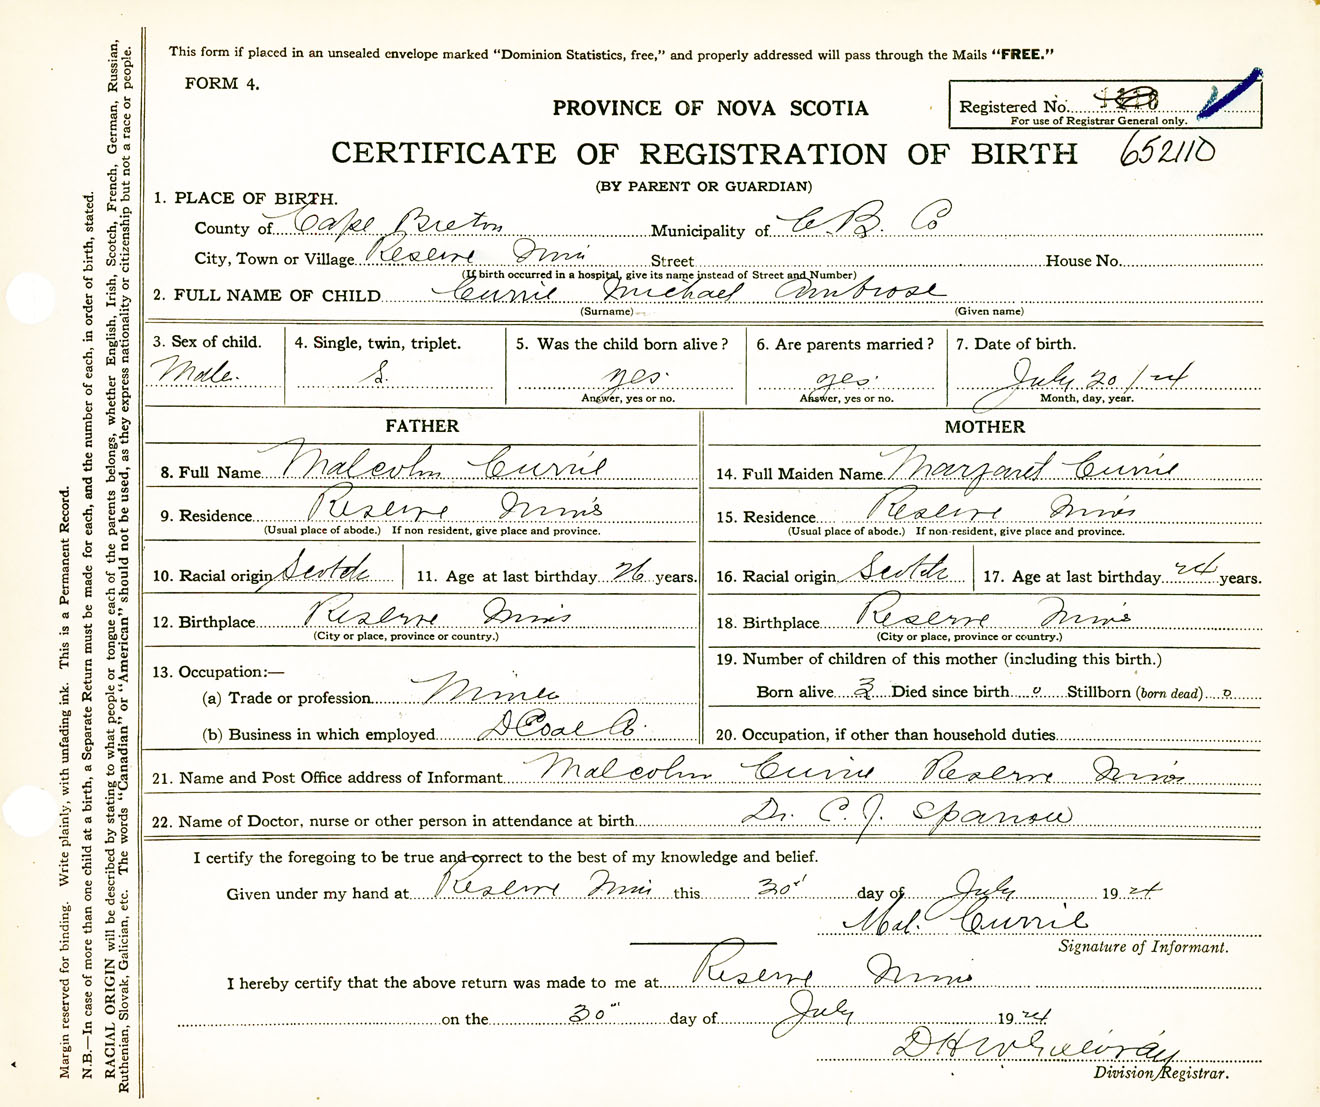 This form if placed in an unsealed envelope marked "Dominion Statistics, free," and properly addressed will pass through the Mails "FREE."
FORM 4.
PROVINCE OF NOVA SCOTIA
Registered No.
For use of Registrar General only.
CERTIFICATE OF REGISTRATION OF BIRTH 652110
(BY PARENT OR GUARDIAN)
1. PLACE OF BIRTH.
County of Cape Breton Municipality of C. B. Co
City, Town or Village Reserve Mines Street House No.
(If birth occurred in a hospital, give its name instead of Street and Number)
2. FULL NAME OF CHILD Currie Michael Ambrose
(Surname) (Given name)
3. Sex of child. 4. Single, twin, triplet. 5. Was the child born alive? 6. Are parents married? 7. Date of birth.
Male. S. yes. yes. July 20/24
Answer, yes or no. Answer, yes or no. Month, day, year.
FATHER MOTHER
8. Full Name Malcolm Currie 14. Full Maiden Name Margaret Currie
9. Residence Reserve Mines 15. Residence Reserve Mines
(Usual place of abode.) If non resident, give place and province. (Usual place of abode.) If non-resident, give place and province.
10. Racial origin Scotch 11. Age at last birthday 26 years. 16. Racial origin Scotch 17. Age at last birthday 24 years.
12. Birthplace Reserve Mines 18. Birthplace Reserve Mines
(City or place, province or country.) (City or place, province or country.)
13. Occupation:— 19. Number of children of this mother (including this birth.)
(a) Trade or profession Miner Born alive 3 Died since birth 0 Stillborn (born dead) 0
(b) Business in which employed D Coal Co. 20. Occupation, if other than household duties
21. Name and Post Office address of Informant Malcolm Currie Reserve Mines
22. Name of Doctor, nurse or other person in attendance at birth Dr. C. J. Sparrow
I certify the foregoing to be true and correct to the best of my knowledge and belief.
Given under my hand at Reserve Mines this 30" day of July 1924
Mal. Currie
Signature of Informant.
I hereby certify that the above return was made to me at Reserve Mines
on the 30" day of July 1924
Division Registrar.
Margin reserved for binding. Write plainly, with unfading ink. This is a Permanent Record.
N.B.—In case of more than one child at a birth, a Separate Return must be made for each, and the number of each, in order of birth, stated.
RACIAL ORIGIN will be described by stating to what people or tongue each of the parents belongs, whether English, Irish, Scotch, French, German, Russian,
Ruthenian, Slovak, Galician, etc. The words "Canadian" or "American" should not be used, as they express nationality or citizenship but not a race or people.